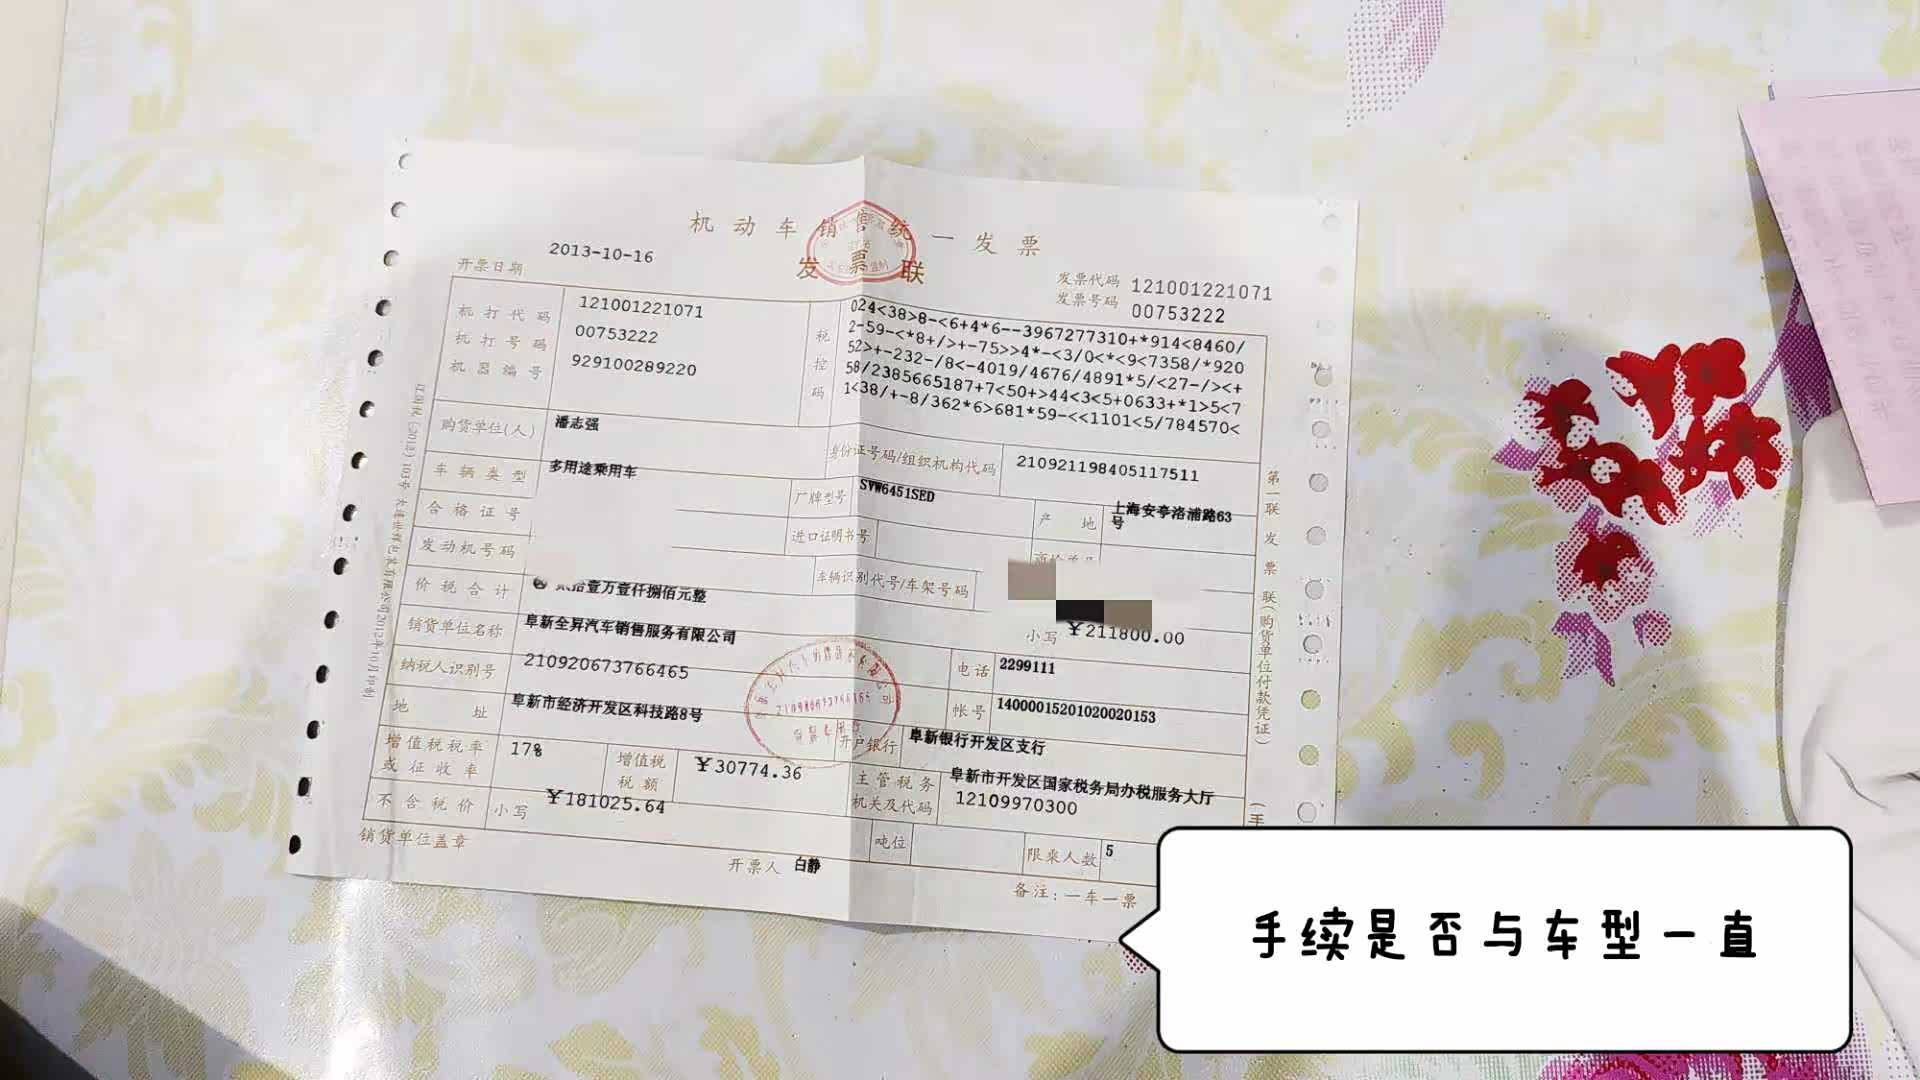 机动车销售统一发票
发票联
开票日期 2013-10-16
发票代码 121001221071
发票号码 00753222
机打代码 121001221071
机打号码 00753222
机器编号 929100289220
税控码
024<38>8-<6+4*6--3967277310+*914<8460/
2-59-<*8+/>+-75>>4*-<3/0<*<9<7358/*920
52>+-232-/8<-4019/4676/4891*5/<27-/><+
58/2385665187+7<50+>44<3<5+0633+*1>5<7
1<38/+-8/362*6>681*59-<<1101<5/784570<
购货单位(人) 潘志强
身份证号码/组织机构代码 210921198405117511
车辆类型 多用途乘用车
厂牌型号 SVW6451SED
产地 上海安亭洛浦路63号
合格证号
进口证明书号
发动机号码
车辆识别代号/车架号码
价税合计 贰拾壹万壹仟捌佰元整
小写 ¥211800.00
销货单位名称 阜新全昇汽车销售服务有限公司
电话 2299111
纳税人识别号 210920673766465
帐号 14000015201020020153
地址 阜新市经济开发区科技路8号
开户银行 阜新银行开发区支行
增值税税率或征收率 17%
增值税税额 ¥30774.36
主管税务机关及代码 阜新市开发区国家税务局办税服务大厅
12109970300
不含税价 小写 ¥181025.64
吨位
限乘人数 5
销货单位盖章
开票人 白静
备注：一车一票
第一联 发票联(购货单位付款凭证)
210920673766465
手续是否与车型一直